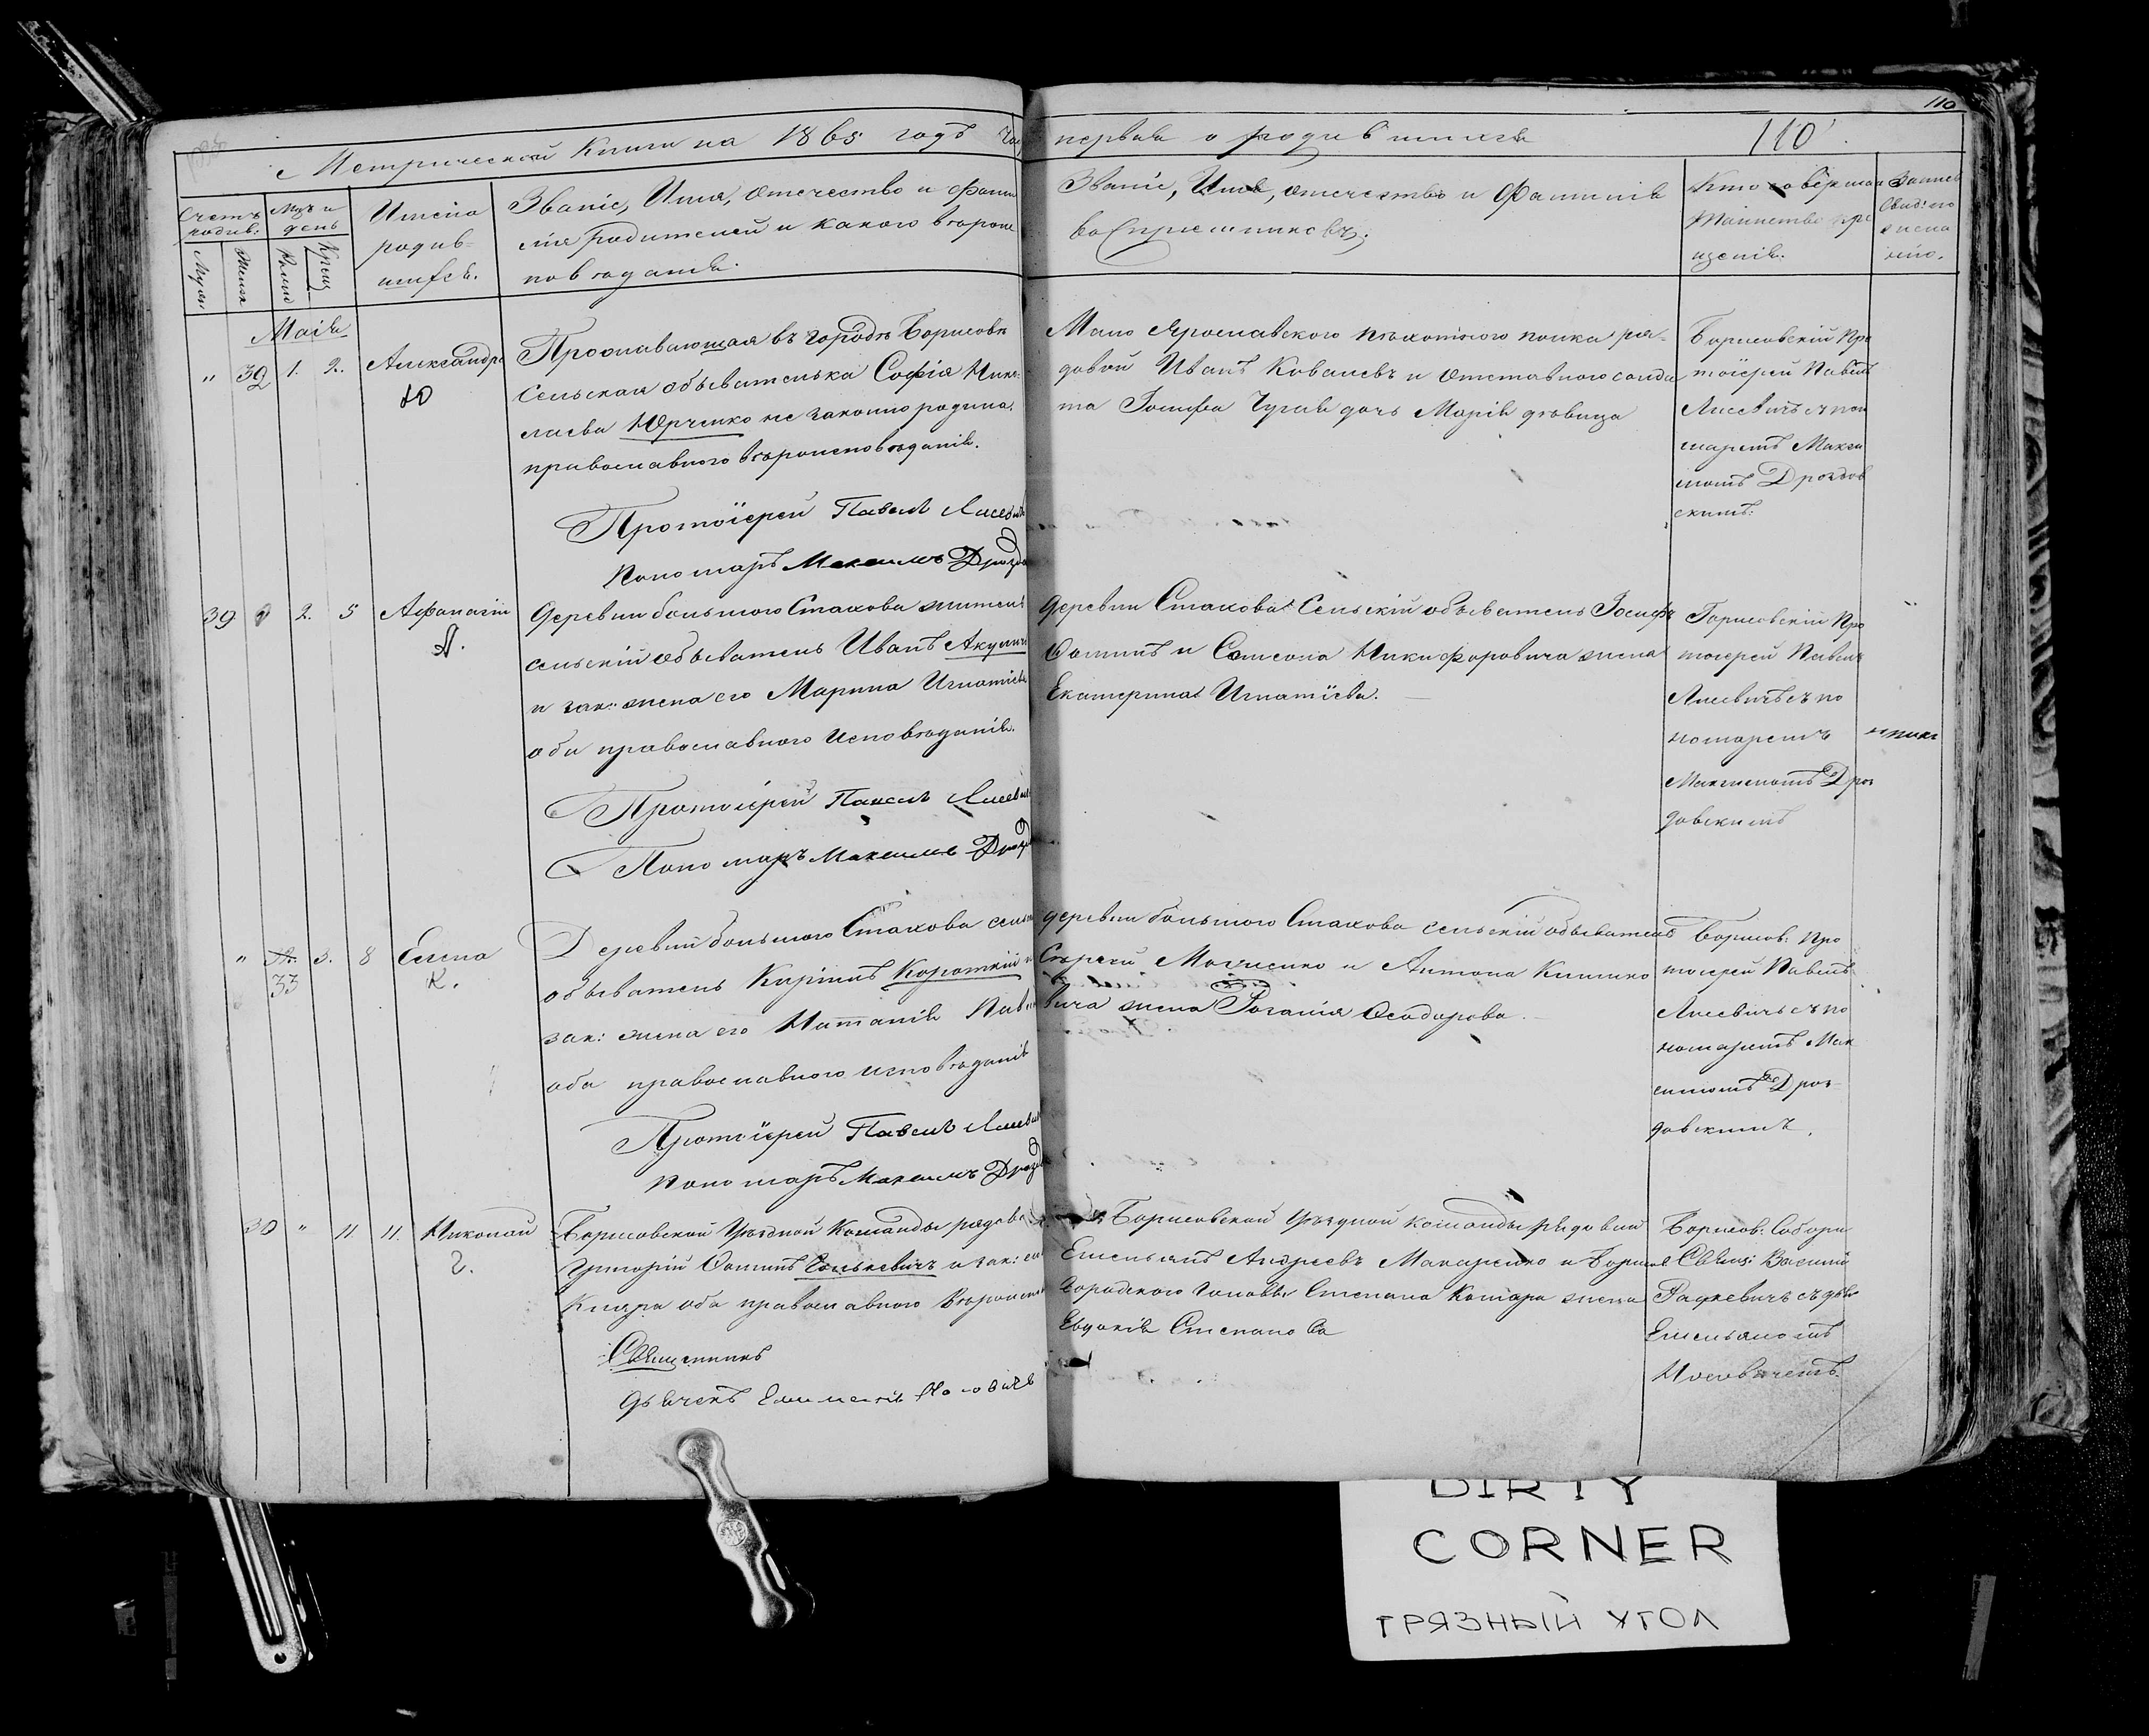 110
Метрической Книги на 1865 годъ Час
первая о родившихся 110
Счетъ родив:
Муж.
Женск
Мцъ и день
Рожд
Крещ
Имена
родив-
шихся.
Званіе, Имя, отечество и фами
лія Родителей и какого вѣроис
повѣданія.
Званіе, Имя, отечество и Фамилія
воспріемниковъ.
Кто совершал
таинство кре
щенія.
Маія
" 32 1. 2. Александра
Ю
Проживающая въ городѣ Борисовѣ
Сельская обывателька Софія Нико
лаева Юрченко не законно родила,
православнаго вѣроисповѣданія.
Протоіерей Павелъ Лисевичъ
Пономарь Максимъ Дрозд
Мало Ярославскаго пѣхотнаго полка ря-
довой Иванъ Ковалевъ и отставнаго солда
та Іосифа дочь Марія дѣвица
Борисовскій Про
тоіерей Павелъ
Лисевичъ съ пон
омаремъ Макси
момъ Дроздов
скимъ.
39 2. 5 Афанасій
А.
Деревни большого Стахова житель
сельскій обыватель Иванъ Акулич
и зак: жена его Марина Игнатіева
оба православнаго исповѣданія.
Протоіерей Павелъ Лисевич
Пономарь Максимъ Дрозд
деревни Стахова Сельскій обыватель Іосифъ
Фоминъ и Самсона Никифоровича жена
Екатерина Игнатіева.
Борисовскій Про
тоіерей Павелъ
Лисевичъ съ по
номаремъ
Максимомъ Дроз
довскимъ
" 33 3. 8 Елена
К.
Деревни большого Стахова сельс
обыватель Кирилъ Короткій и
зак: жена его Наталія Павл
оба православнаго исповѣданія
Протоіерей Павелъ Лисевич
Пономарь Максимъ Дрозд
деревни большого Стахова сельскій обыватель
Сергей и Антона Климко
вича жена Розалія Феодорова.
Борисов: Про
тоіерей Павелъ
Лисевичъ съ по
номаремъ Мак
симомъ Дроз-
довскимъ.
30 " 11 11. Николай
Г.
Борисовской Уѣздной Команды рядово
Григорій Фоминъ и зак:
Клара оба православнаго вѣроиспов
Священникъ
Дьячекъ
Борисовской уѣздной команды рядовый
Емельянъ Андреевъ Макаренко и Борисов
Городского Головы Степана Котара жена
Евдокія Степанова
Борисов: Собора
Свящ: Василій
Рацкевичъ съ дья
Емельяномъ